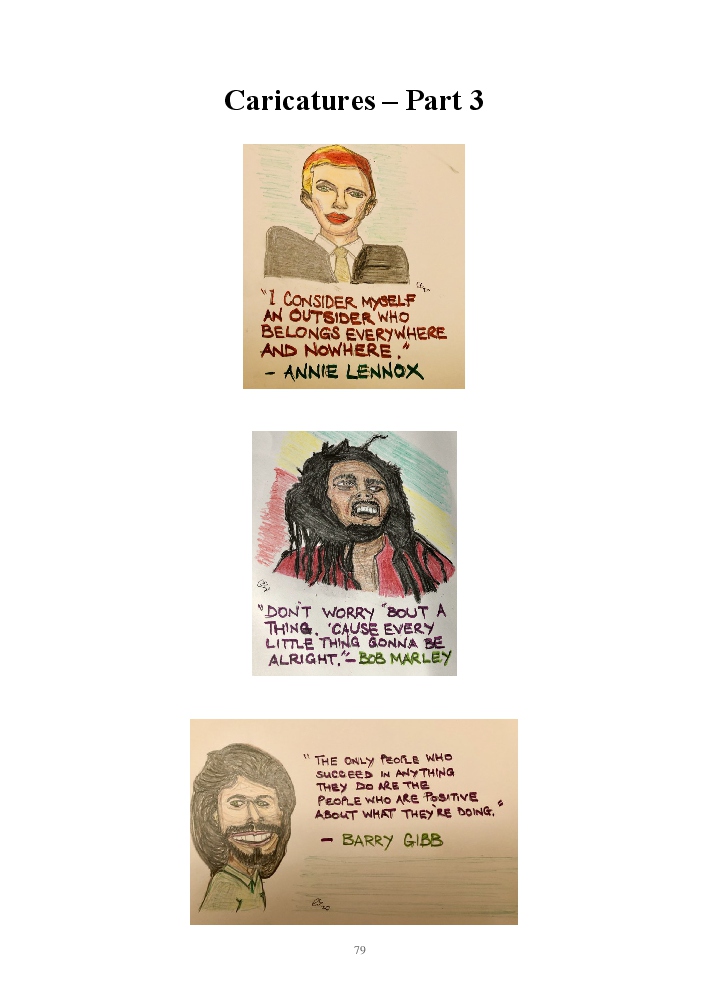 Caricatures – Part 3
"I CONSIDER MYSELF
AN OUTSIDER WHO
BELONGS EVERYWHERE
AND NOWHERE."
- ANNIE LENNOX
"DON'T WORRY 'BOUT A
THING. 'CAUSE EVERY
LITTLE THING GONNA BE
ALRIGHT."- BOB MARLEY
"THE ONLY PEOPLE WHO
SUCCEED IN ANYTHING
THEY DO ARE THE
PEOPLE WHO ARE POSITIVE
ABOUT WHAT THEY'RE DOING."
- BARRY GIBB
79